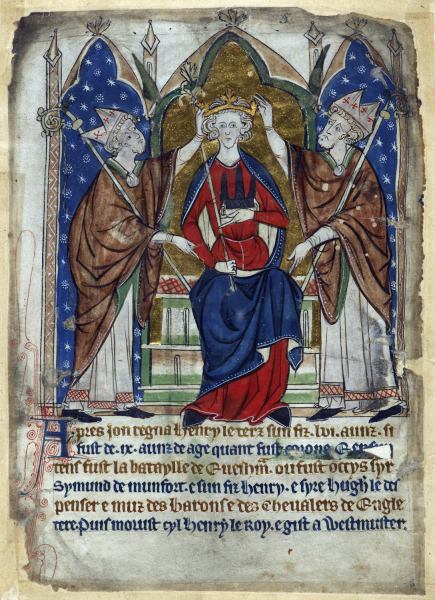 Apres Jon regna Henry le terz sun fiz .lvi. aunz. si
fust de .ix. aunz de age quant fust corone
tens fust la bataylle de Euesham. ou fust occys syr
Symund de munfort. e sun fiz Henry. e syre Hugh le de
penser e muz des Barons e des Chevalers de Engle
tere. Puis morust cyl Henry le Roy. e gist a Westmuster.